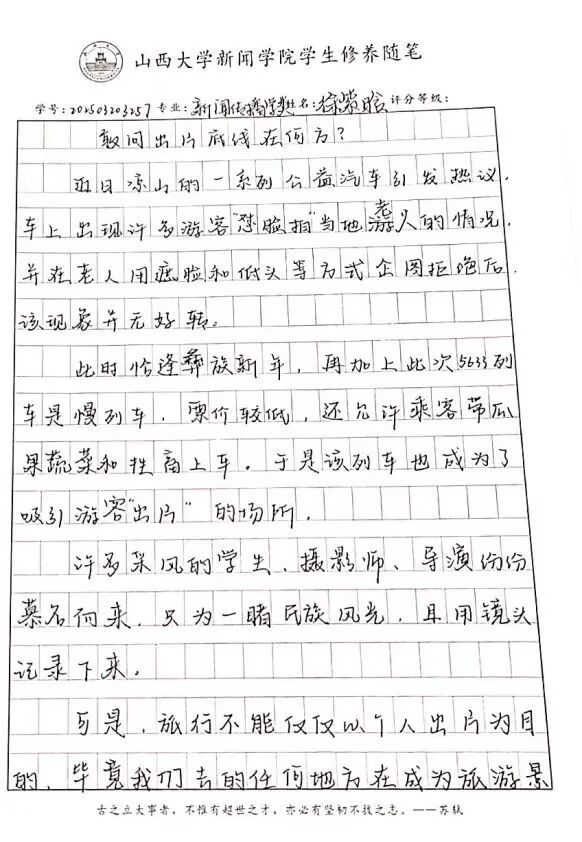 山西大学新闻学院学生修养随笔
学号:202503203257专业:新闻传播学类姓名:徐紫晗评分等级:
敢问出片底线在何方?
近日凉山的一系列公益汽车引发热议,
车上出现许多游客“怼脸拍”当地老人的情况,
并在老人用遮脸和低头等方式企图拒绝后,
该现象并无好转。
此时恰逢彝族新年,再加上此次5633列
车是慢列车,票价较低,还允许乘客带瓜
果蔬菜和牲畜上车。于是该列车也成为了
吸引游客“出片”的场所。
许多采风的学生、摄影师、导演份份
慕名而来,只为一睹民族风光,且用镜头
记录下来。
可是,旅行不能仅仅以个人出片为目
的,毕竟我们去的任何地方在成为旅游景
古之立大事者,不惟有超世之才,亦必有坚韧不拔之志。——苏轼